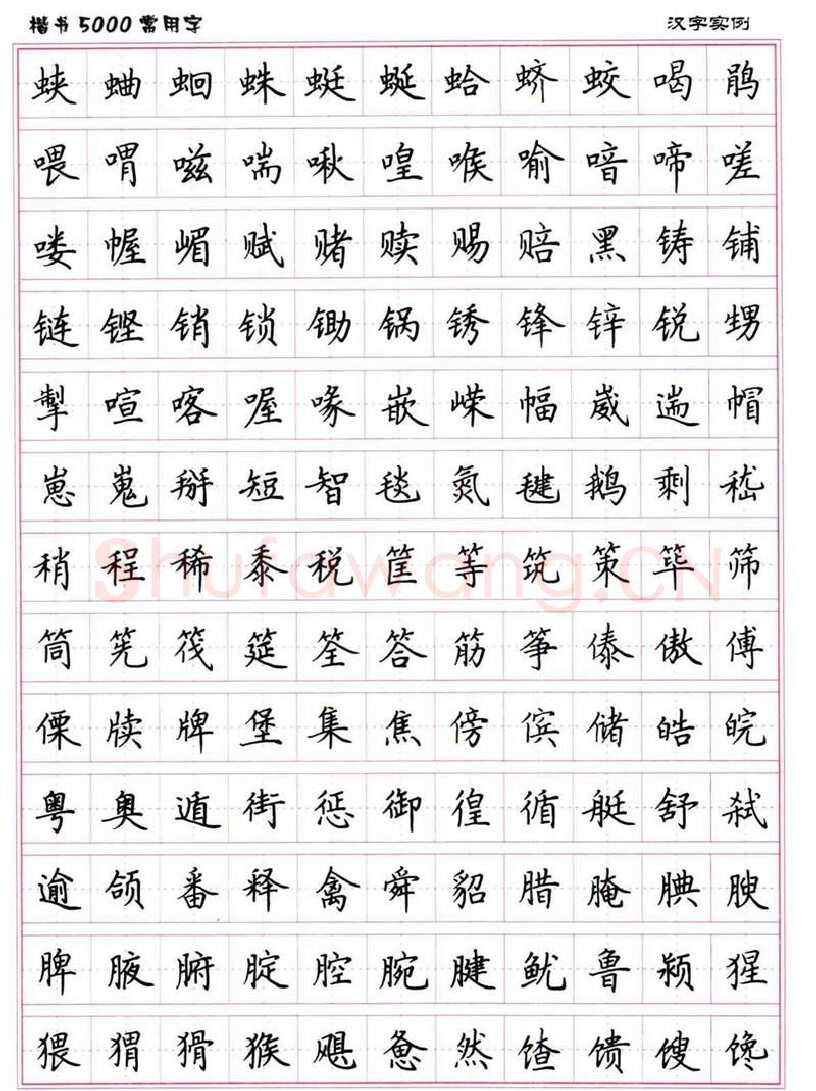 楷书5000常用字 汉字实例
蛱蛐蛔蛛蜓蜒蛤蛴蛟喝鹃
喂喟嗞喘啾喤喉喻喑啼嗟
喽幄嵋赋赌赎赐赔黑铸铺
链铿销锁锄锅锈锋锌锐甥
掣喧喀喔喙嵌嵘幅崴遄帽
崽嵬掰短智毯氮毽鹅剩嵇
稍程稀黍税筐等筑策筚筛
筒筅筏筵筌答筋筝傣傲傅
傈牍牌堡集焦傍傧储皓皖
粤奥遁街惩御徨循艇舒弑
逾颌番释禽舜貂腊腌腆腴
脾腋腑腚腔腕腱鱿鲁颍猩
猥猬猾猴飓惫然馇馈馊馋
Shufawang.CN